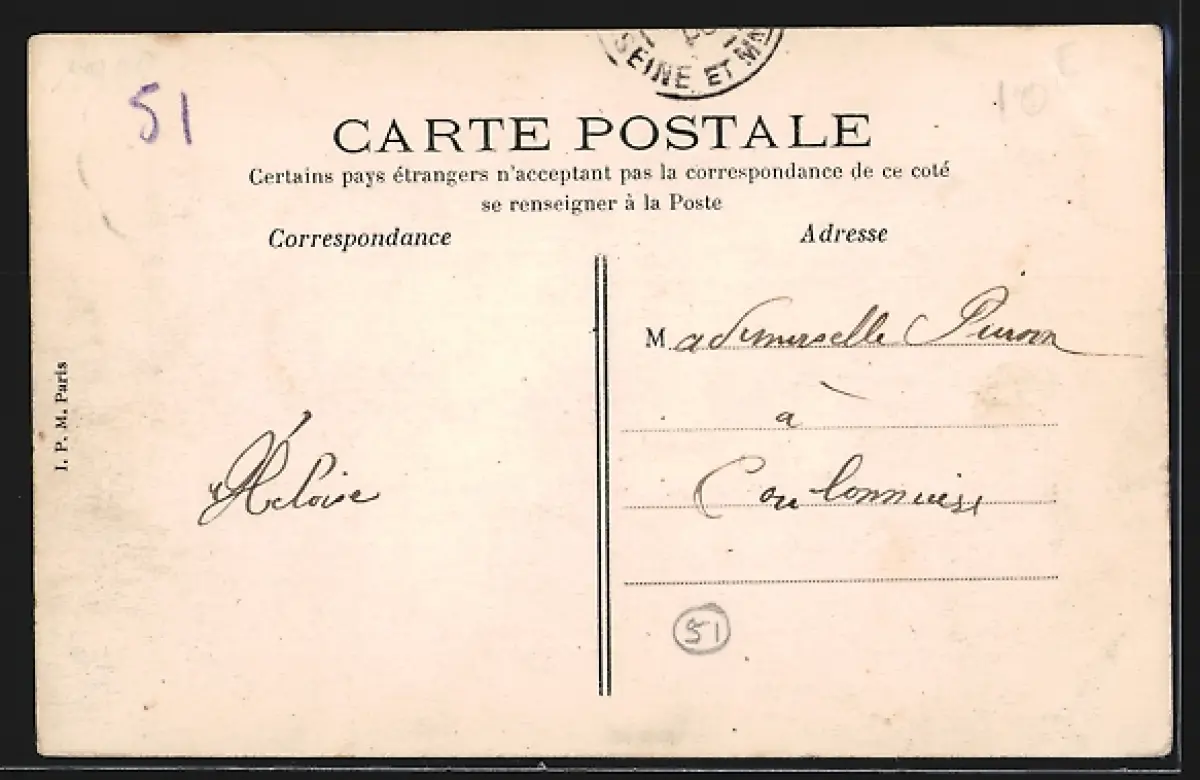 SEINE ET MNE
51
10
CARTE POSTALE
Certains pays étrangers n'acceptant pas la correspondance de ce coté
se renseigner à la Poste
Correspondance
Adresse
Mademoiselle
à
Coulommiers
Héloïse
I. P. M. Paris
51